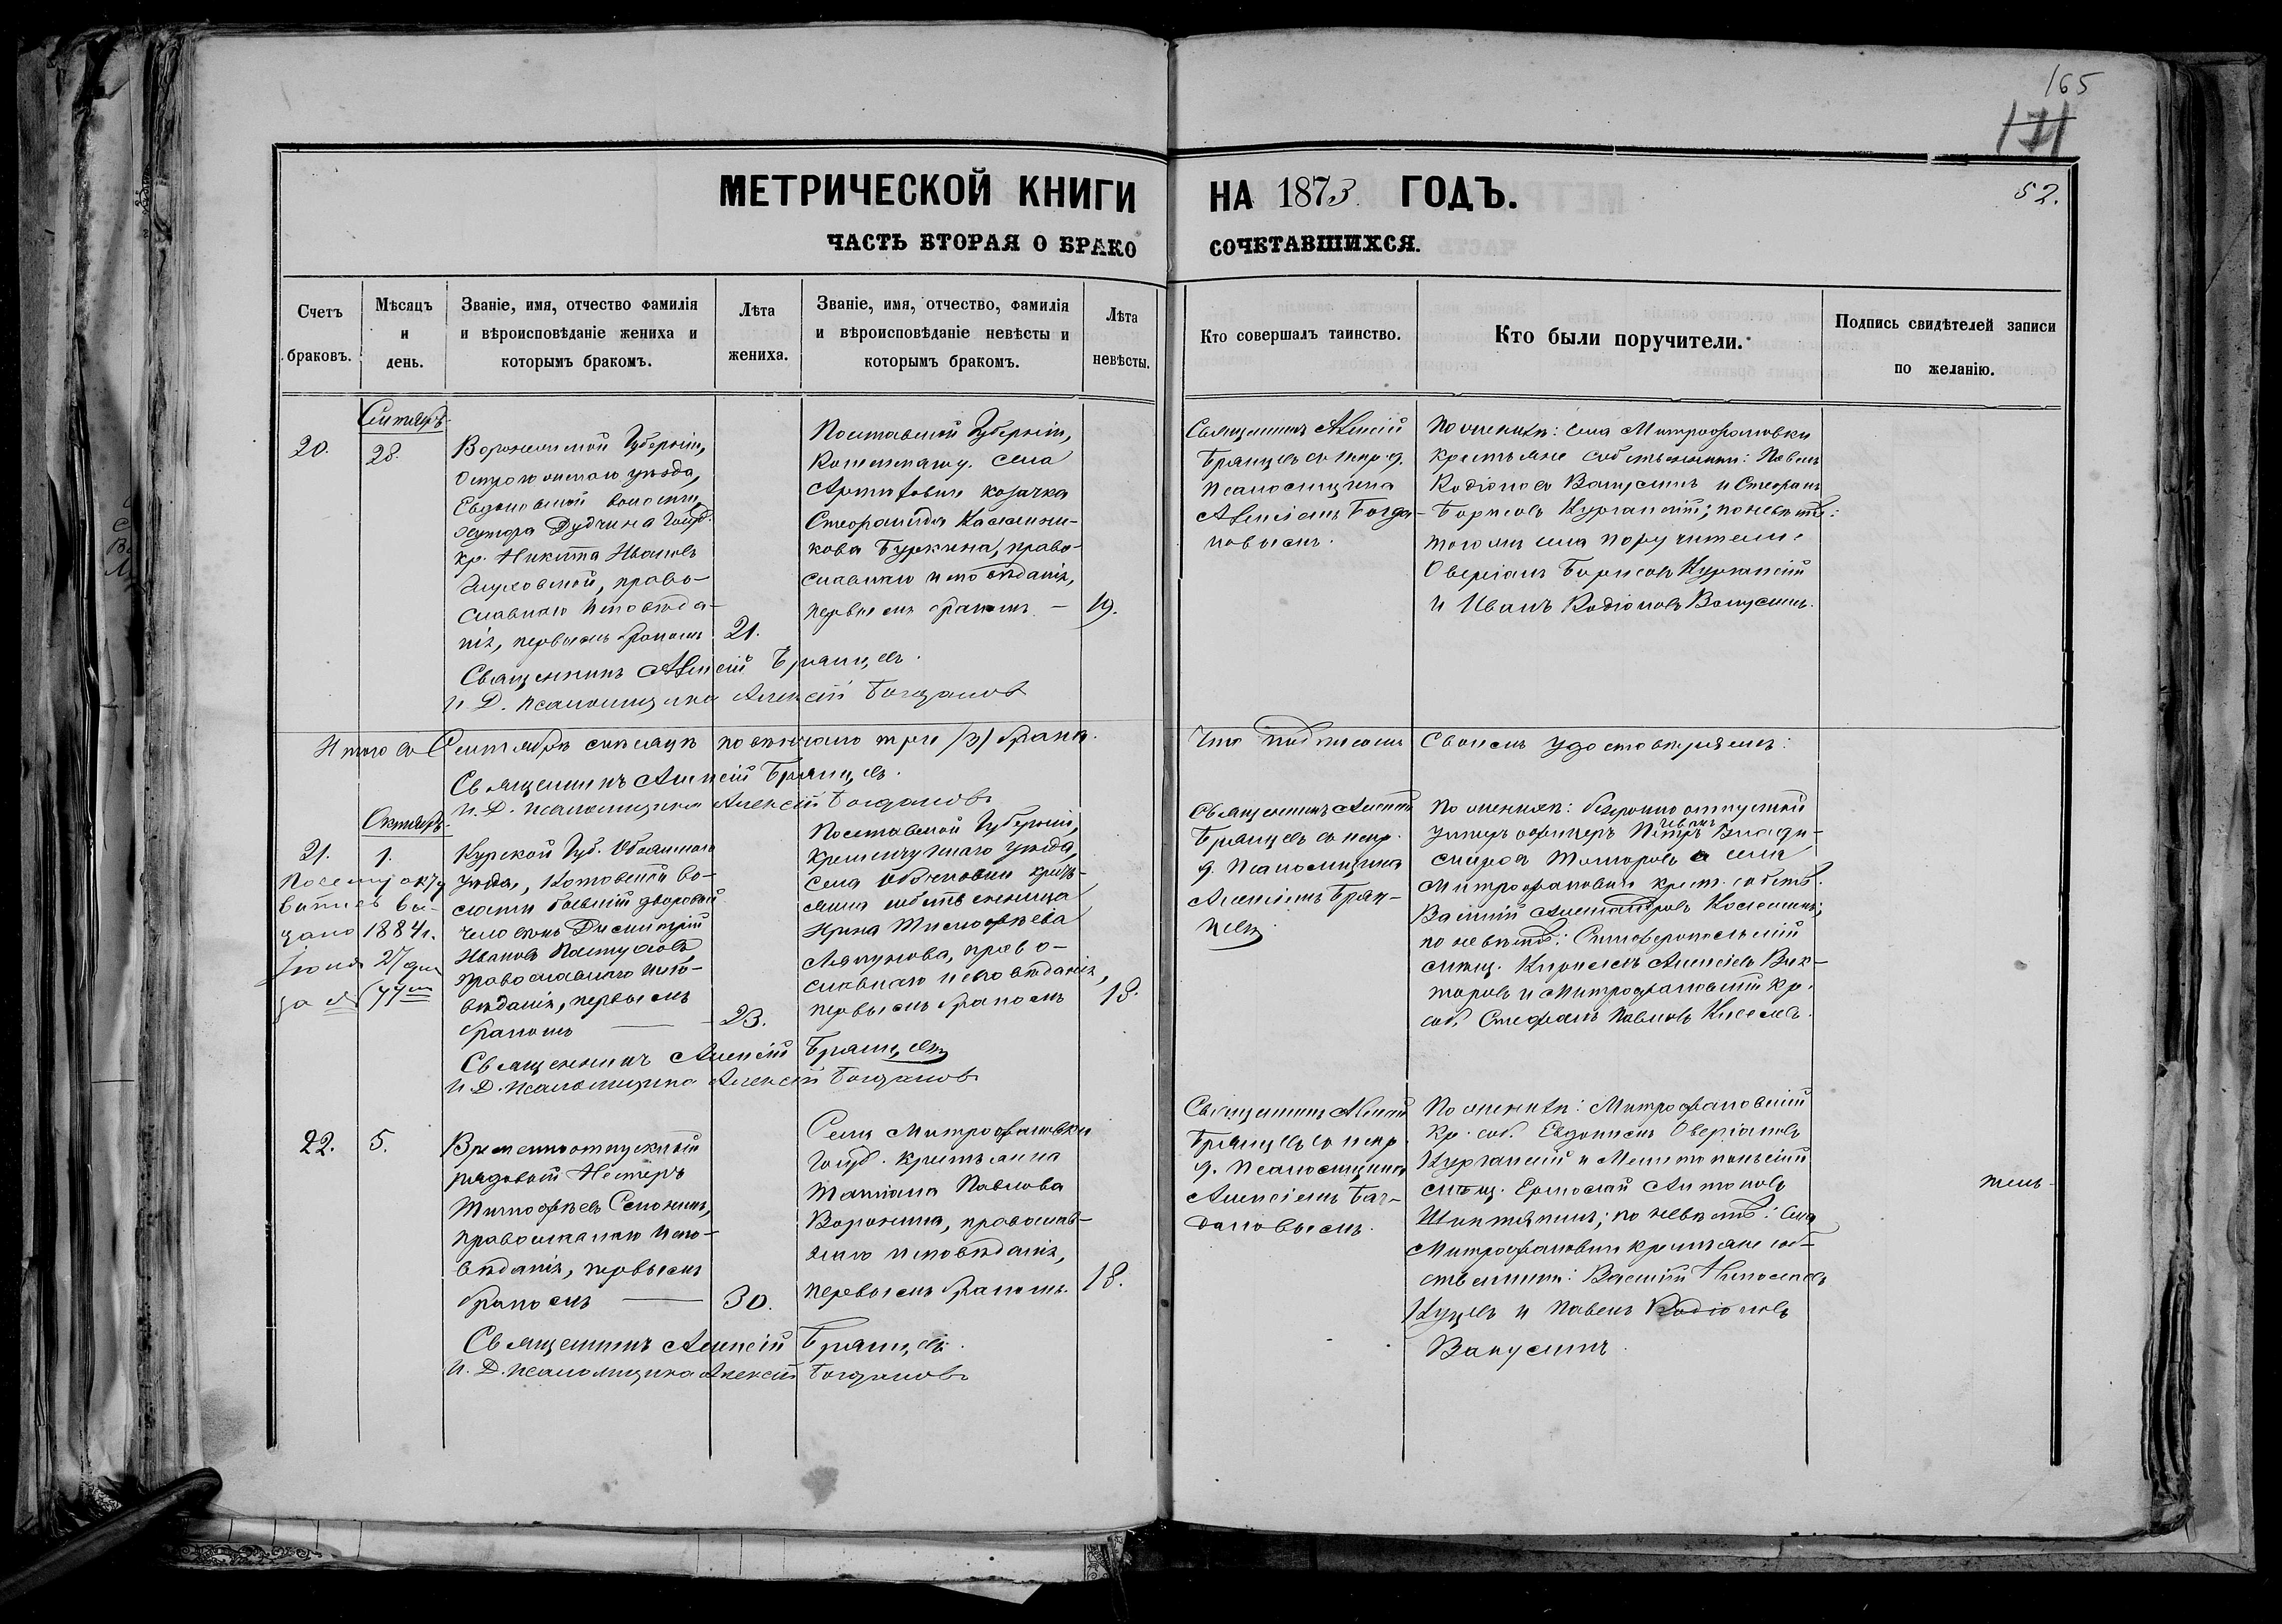 165
171
МЕТРИЧЕСКОЙ КНИГИ НА 1873 ГОДЪ.
52.
ЧАСТЬ ВТОРАЯ О БРАКОСОЧЕТАВШИХСЯ.
Счетъ браковъ.
Мѣсяцъ и день.
Званіе, имя, отчество фамилія и вѣроисповѣданіе жениха и которымъ бракомъ.
Лѣта жениха.
Званіе, имя, отчество, фамилія и вѣроисповѣданіе невѣсты и которымъ бракомъ.
Лѣта невѣсты.
Кто совершалъ таинство.
Кто были поручители.
Подпись свидѣтелей записи по желанію.
Сентябрь.
20.
28.
Воронежской Губерніи,
уѣзда,
волости,
хутора Дудчина Госуд.
кр. Никита Ивановъ
право-
славнаго исповѣда-
нія, первымъ бракомъ
21.
Полтавской Губерніи,
села
козачка
Стефанида
Буркина, право-
славнаго исповѣданія,
первымъ бракомъ —
19.
Священникъ Алексій
Брянцевъ съ испр. д.
Псаломщика
Алексіемъ Богда-
новымъ.
По женихѣ: села Митрофановки
крестьяне собственники: Павелъ
Родіоновъ и Стефанъ
Борисовъ Курганскій; по невѣстѣ:
того же села поручители:
Оверіанъ Борисовъ Курганскій
и Иванъ Родіоновъ
Священникъ Алексій Брянцевъ.
И. Д. псаломщика Алексій Богдановъ
Итого въ Сентябрѣ мѣсяцѣ повѣнчано три /3/ брака.
Что подписомъ Своимъ удостовѣряемъ:
Священникъ Алексій Брянцевъ.
И. Д. псаломщика Алексій Богдановъ
Октябрь.
21.
1.
1884 г.
Іюня 27 дня
за № 44мъ
Курской Губ. Обоянскаго
уѣзда, Котовской во-
лости бывшій дворовый
человѣкъ Димитрій
Ивановъ Пастуховъ,
православнаго испо-
вѣданія, первымъ
бракомъ —
23.
Полтавской Губерніи,
Кременчугскаго уѣзда,
села кресть-
янина собственница
Ирина Тимофѣева
право-
славнаго исповѣданія,
первымъ бракомъ
18.
Священникъ Алексій
Брянцевъ съ испр.
д. Псаломщика
Алексіемъ
По женихѣ: безсрочно отпускной
унтеръ офицеръ Петръ
и села
Митрофановки крест. собств.
Василій Александровъ
по невѣстѣ: Симферопольскій
мѣщ. Кириллъ Алексѣевъ Вик-
торовъ и Митрофановскій кр.
соб. Стефанъ Павловъ Киселевъ.
Священникъ Алексій Брянцевъ
И. Д. псаломщика Алексій Богдановъ
22.
5.
Временноотпускной
рядовой Нестеръ
Тимофѣевъ
православнаго испо-
вѣданія, первымъ
бракомъ —
30.
Села Митрофановки
Госуд. крестьянка
Татіана Павлова
Воронина, православ-
наго исповѣданія,
первымъ бракомъ.
18.
Священникъ Алексій
Брянцевъ съ испр.
д. Псаломщика
Алексіемъ Бог-
дановымъ.
По женихѣ: Митрофановскій
кр. соб. Евдокимъ Оверіановъ
Курганскій и Мелитопольскій
мѣщ. Ермолай Антоновъ
по невѣстѣ: села
Митрофановки крестьяне соб-
ственники: Василій Николаевъ
и Павелъ Родіоновъ
Священникъ Алексій Брянцевъ.
И. Д. псаломщика Алексій Богдановъ